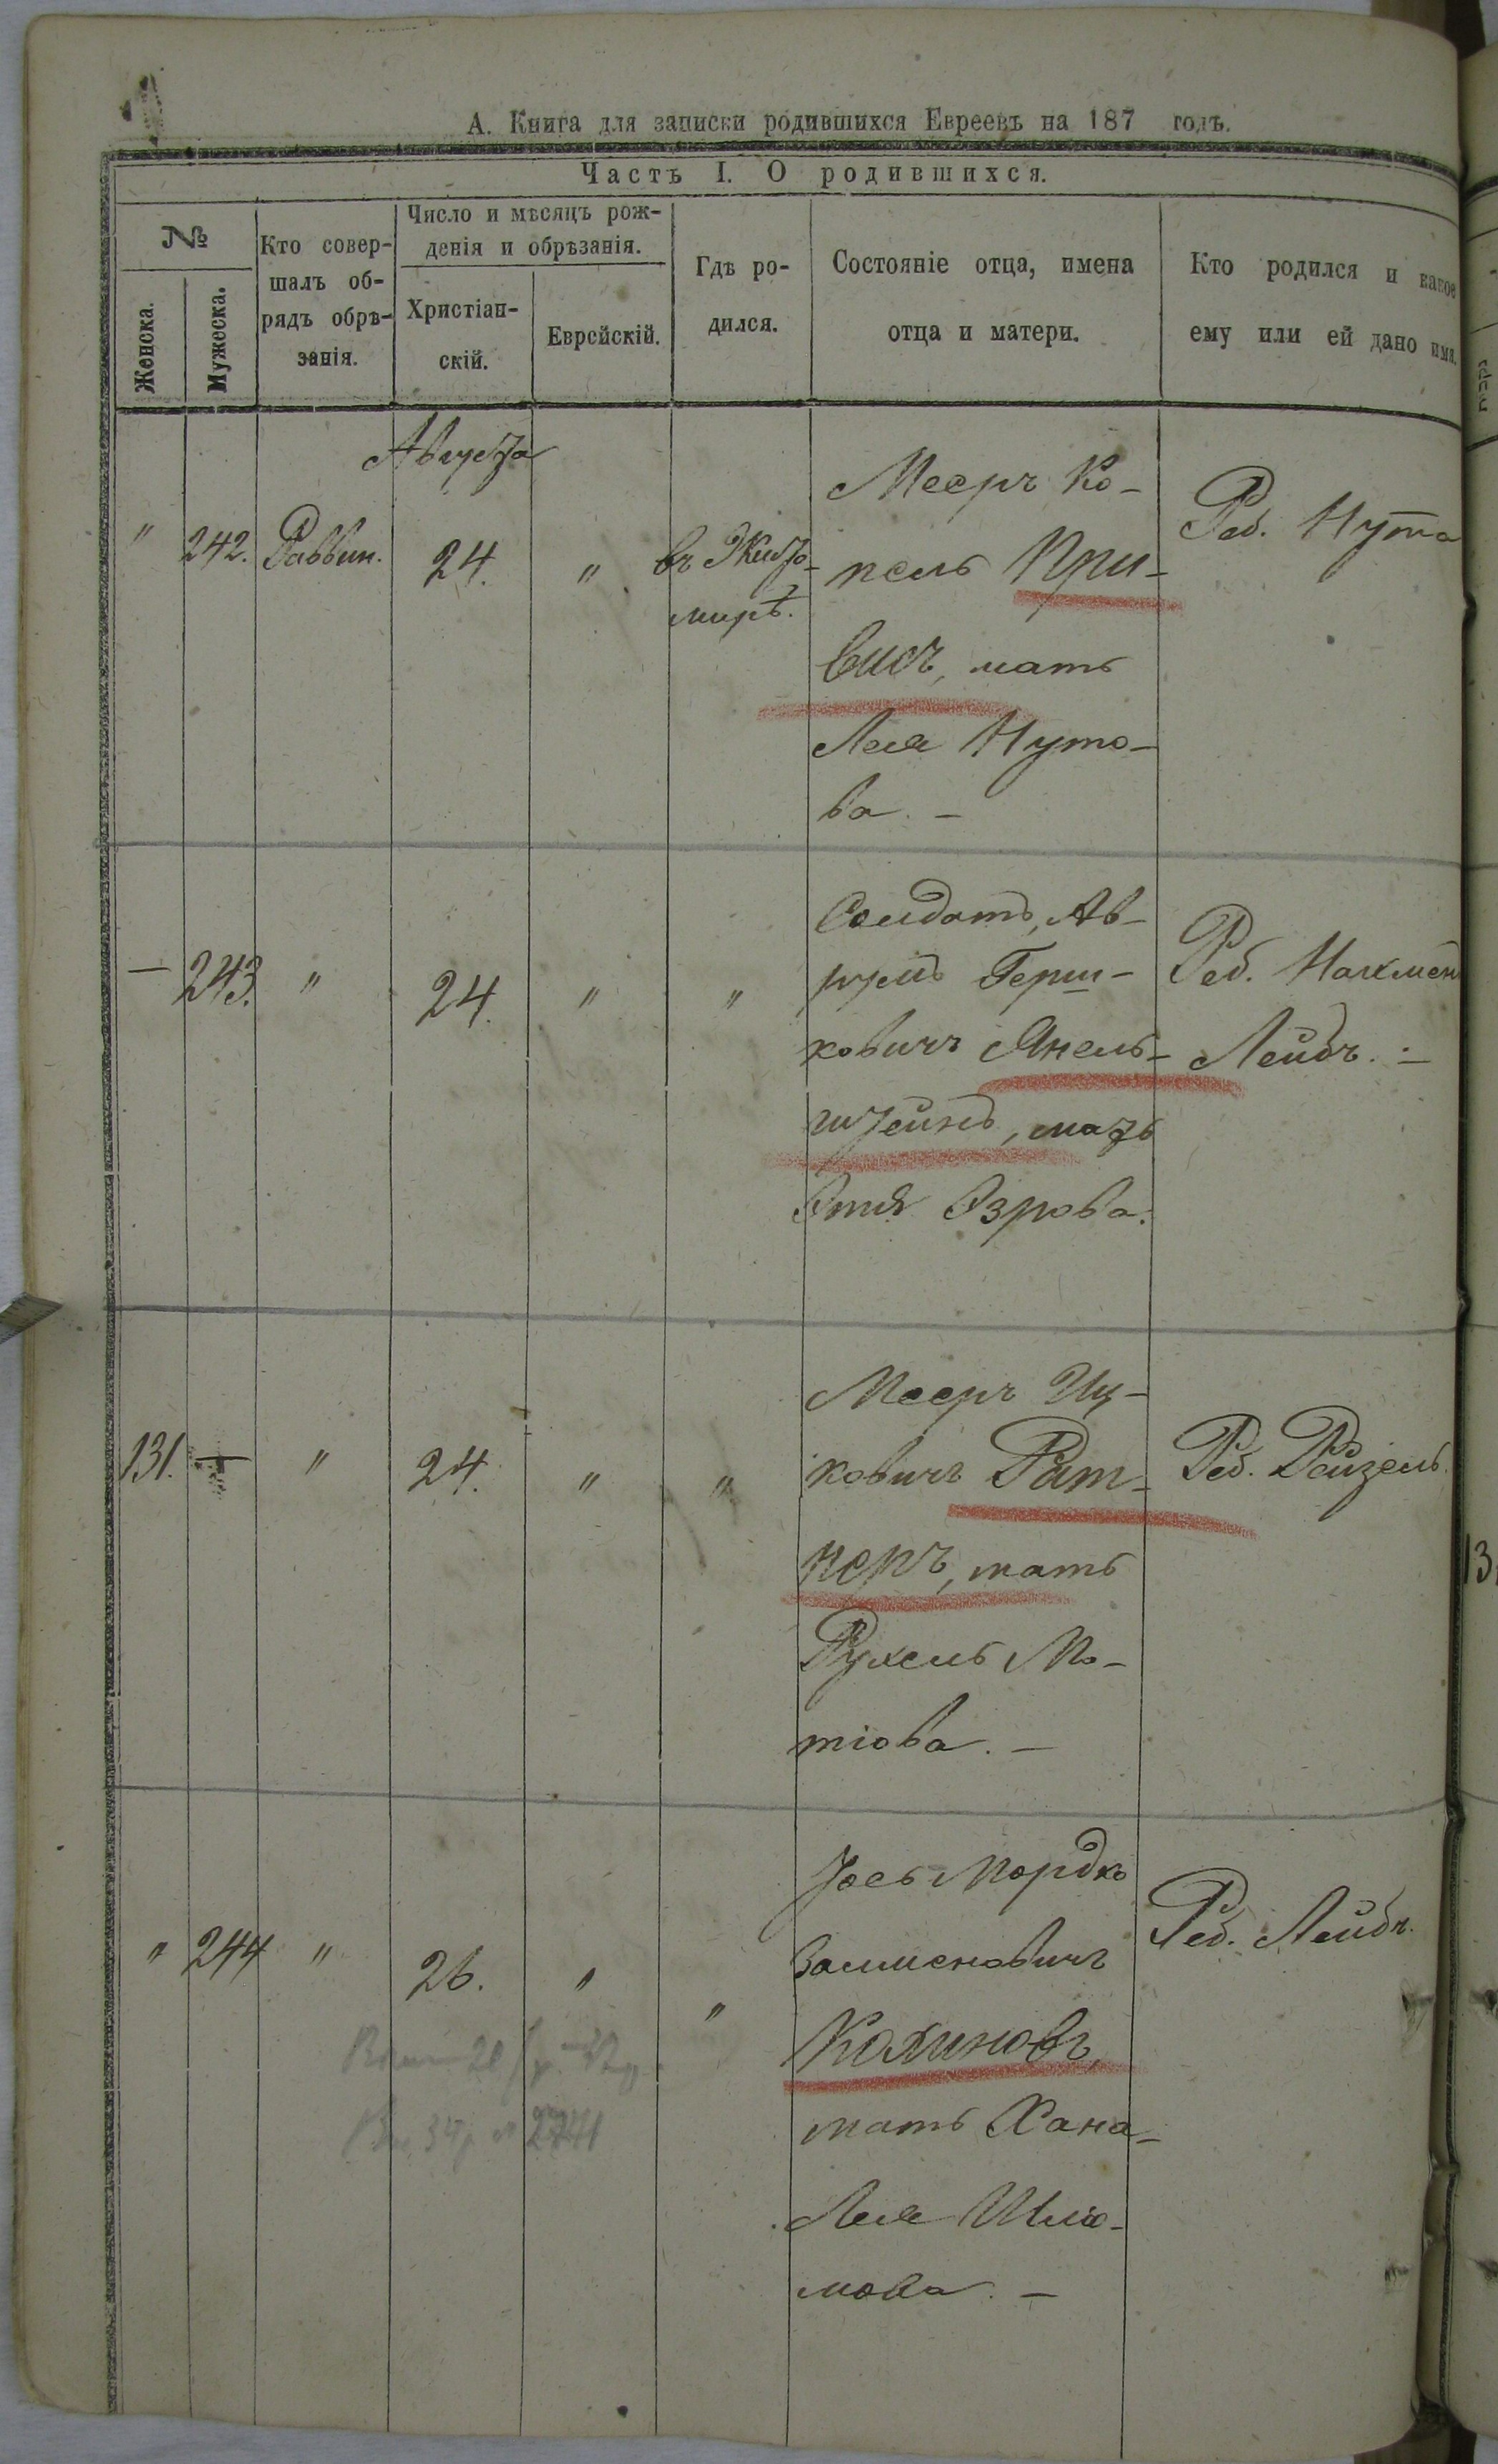 А. Книга для записки родившихся Евреевъ на 187 годъ.
Часть I. О родившихся.
№
Женска.
Мужеска.
Кто совер-
шалъ об-
рядъ обрѣ-
занія.
Число и мѣсяцъ рож-
денія и обрѣзанія.
Христіан-
скій.
Еврейскій.
Гдѣ ро-
дился.
Состояніе отца, имена
отца и матери.
Кто родился и какое
ему или ей дано имя.
Августа
" 242. Раввин. 24. " въ Жито-
мирѣ.
Мееръ Ко-
пель При-
висъ, мать
Лея Нуто-
ва. –
Реб. Нута
– 243. " 24. " "
Солдатъ, Ав-
румъ Герш-
ковичъ Янель-
штейнъ, мать
Этя Эзрова.
Реб. Нахмен
Лейбъ. –
131. – " 24. " "
Мееръ Иц-
ковичъ Рат-
неръ, мать
Рухель Мо-
тіова. –
Реб. Рейзель.
" 244 " 26. " "
Іось Мордко
Залменовичъ
Калиновъ,
мать Хана-
Лея Шліо-
мова. –
Реб. Лейбъ.
2741